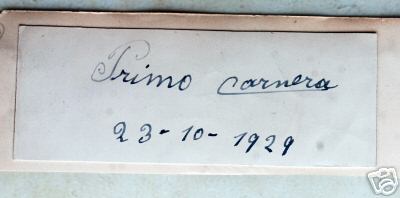 Primo Carnera
23-10-1929